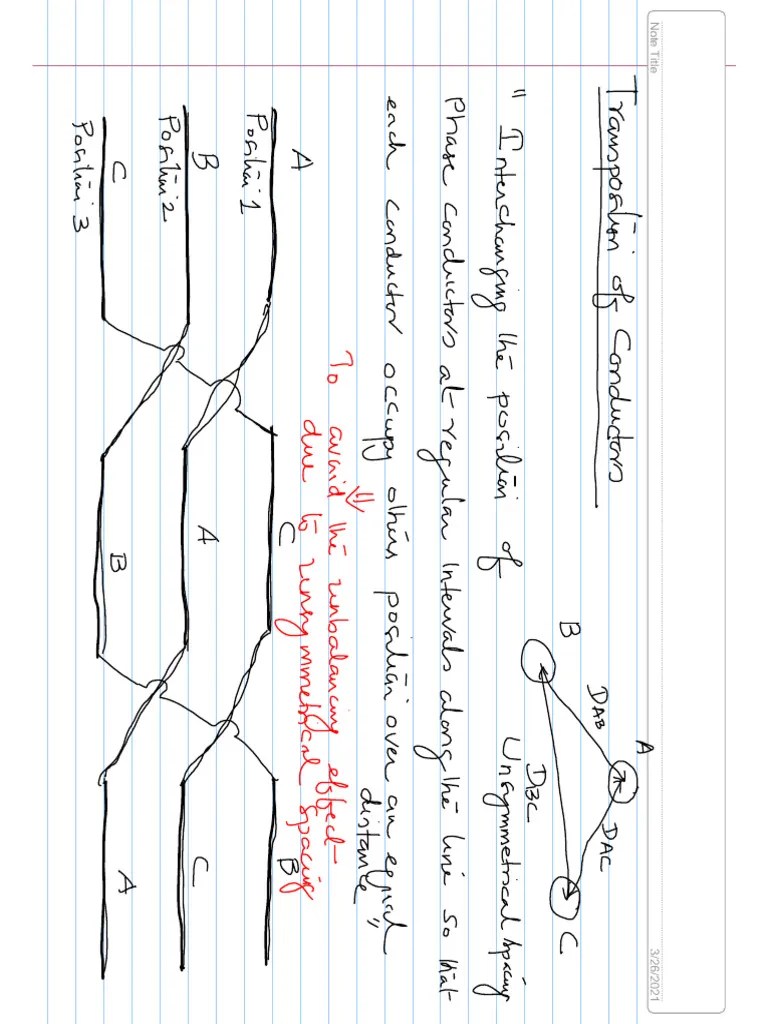 Note Title
3/26/2021
Transposition of Conductors
A
DAB
DAC
B
C
DBC
Unsymmetrical spacing
" Interchanging the position of
Phase conductors at regular Intervals along the line so that
each conductor occupy other position over an equal
distance "
To avoid the unbalancing effect
due to unsymmetrical spacing
A
C
B
Position 1
B
A
C
Position 2
C
B
A
Position 3